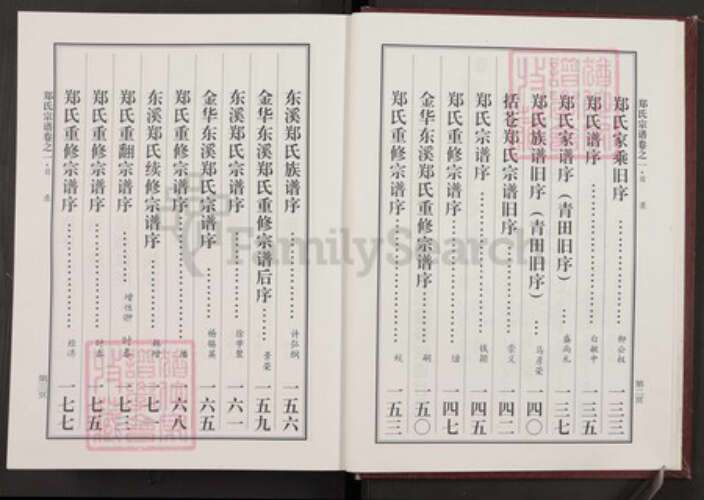 郑氏宗谱卷之一·目录
郑氏家乘旧序……柳公权 一三三
郑氏谱序……白敏中 一三五
郑氏家谱序（青田旧序）……盛尚礼 一三七
郑氏族谱旧序（青田旧序）……马彦荣 一四〇
括苍郑氏宗谱旧序……崇义 一四二
郑氏宗谱序……钱颕 一四五
郑氏重修宗谱序…… 一四七
金华东溪郑氏重修宗谱序……嗣 一五〇
郑氏重修宗谱序…… 一五三
第二页
东溪郑氏族谱序……许弘纲 一五六
金华东溪郑氏重修宗谱后序……景荣 一五九
东溪郑氏宗谱序……徐学聚 一六一
金华东溪郑氏宗谱序……杨锡英 一六五
郑氏重修宗谱序…… 一六八
东溪郑氏续修宗谱序…… 一七
郑氏重翻宗谱序……增恒卿 时春 一七三
郑氏重修宗谱序……时春 一七五
郑氏重修宗谱序……经济 一七七
郑氏宗谱卷之一·目录
第三页
FamilySearch